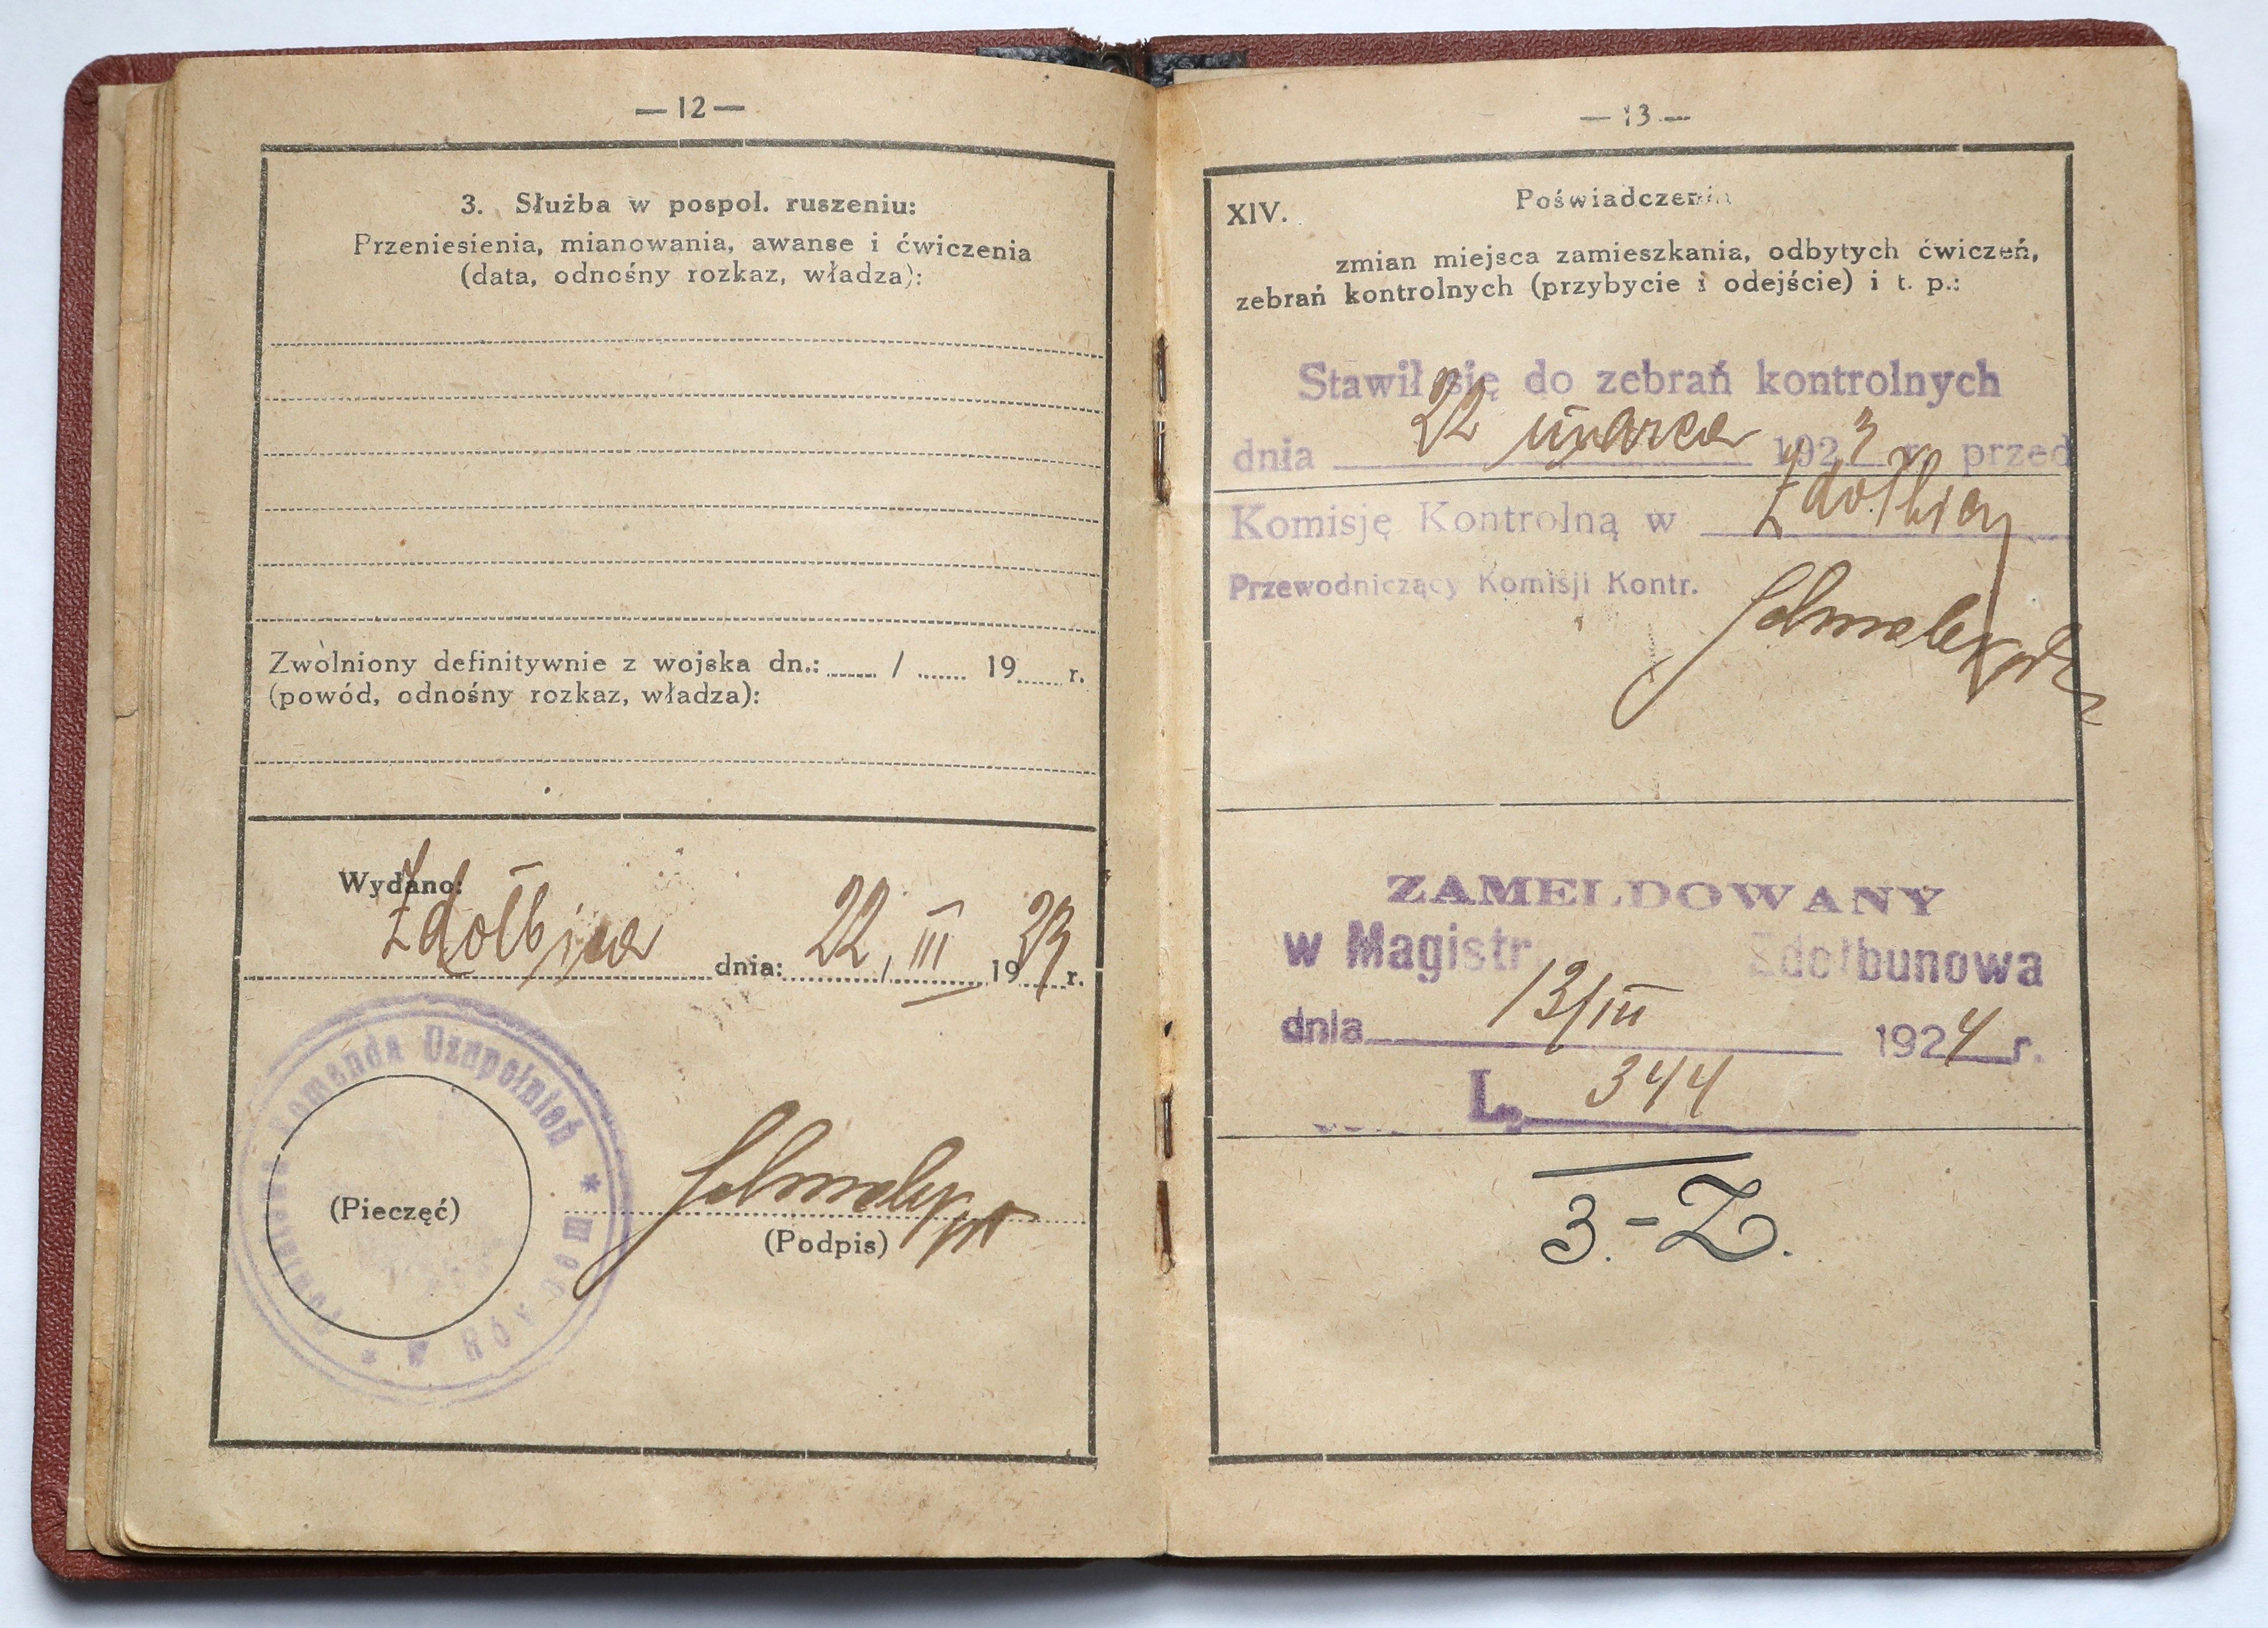 — 12 —
3. Służba w pospol. ruszeniu:
Przeniesienia, mianowania, awanse i ćwiczenia
(data, odnośny rozkaz, władza):
Zwolniony definitywnie z wojska dn.: / 19 r.
(powód, odnośny rozkaz, władza):
Wydano:
Zdołbica dnia: 22 / III 1923 r.
Powiatowa Komenda Uzupełnień * w Równem *
(Pieczęć)
(Podpis)
— 13 —
XIV. Poświadczenia
zmian miejsca zamieszkania, odbytych ćwiczeń,
zebrań kontrolnych (przybycie i odejście) i t. p.:
Stawił się do zebrań kontrolnych
dnia 22 marca 1923 r. przed
Komisję Kontrolną w Zdołbicy
Przewodniczący Komisji Kontr.
ZAMELDOWANY
w Magistr Zdołbunowa
dnia 13/III 1924 r.
L. 344
3.-Z.